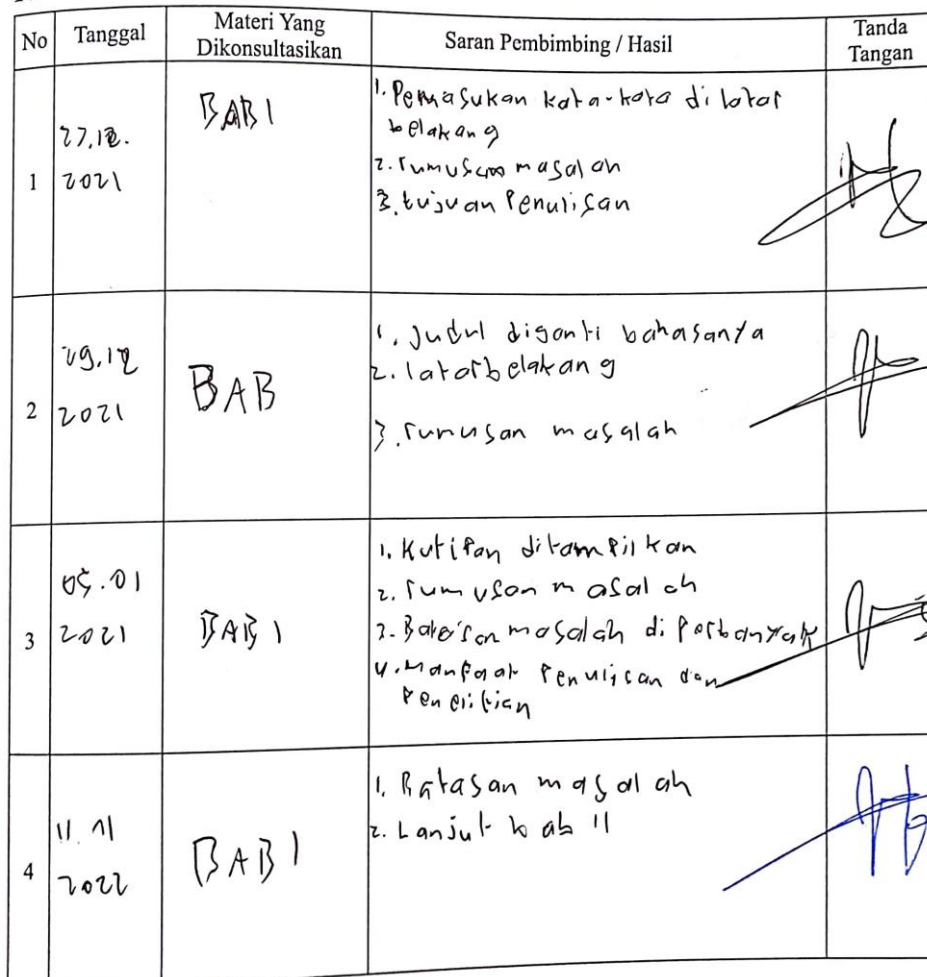 No Tanggal Materi Yang Dikonsultasikan Saran Pembimbing / Hasil Tanda Tangan
1
27.12.
2021
BAB I
1. Pemasukan kata-kata di latar
belakang
2. rumusan masalah
3. tujuan Penulisan
2
29.12
2021
BAB
1. Judul diganti bahasanya
2. latar belakang
3. rumusan masalah
3
05.01
2021
BAB 1
1. Kutipan ditampilkan
2. rumusan masalah
3. Batasan masalah di Perbanyak
4. Manfaat Penulisan dan
Penelitian
4
11.01
2022
BAB 1
1. Batasan masalah
2. Lanjut bab II